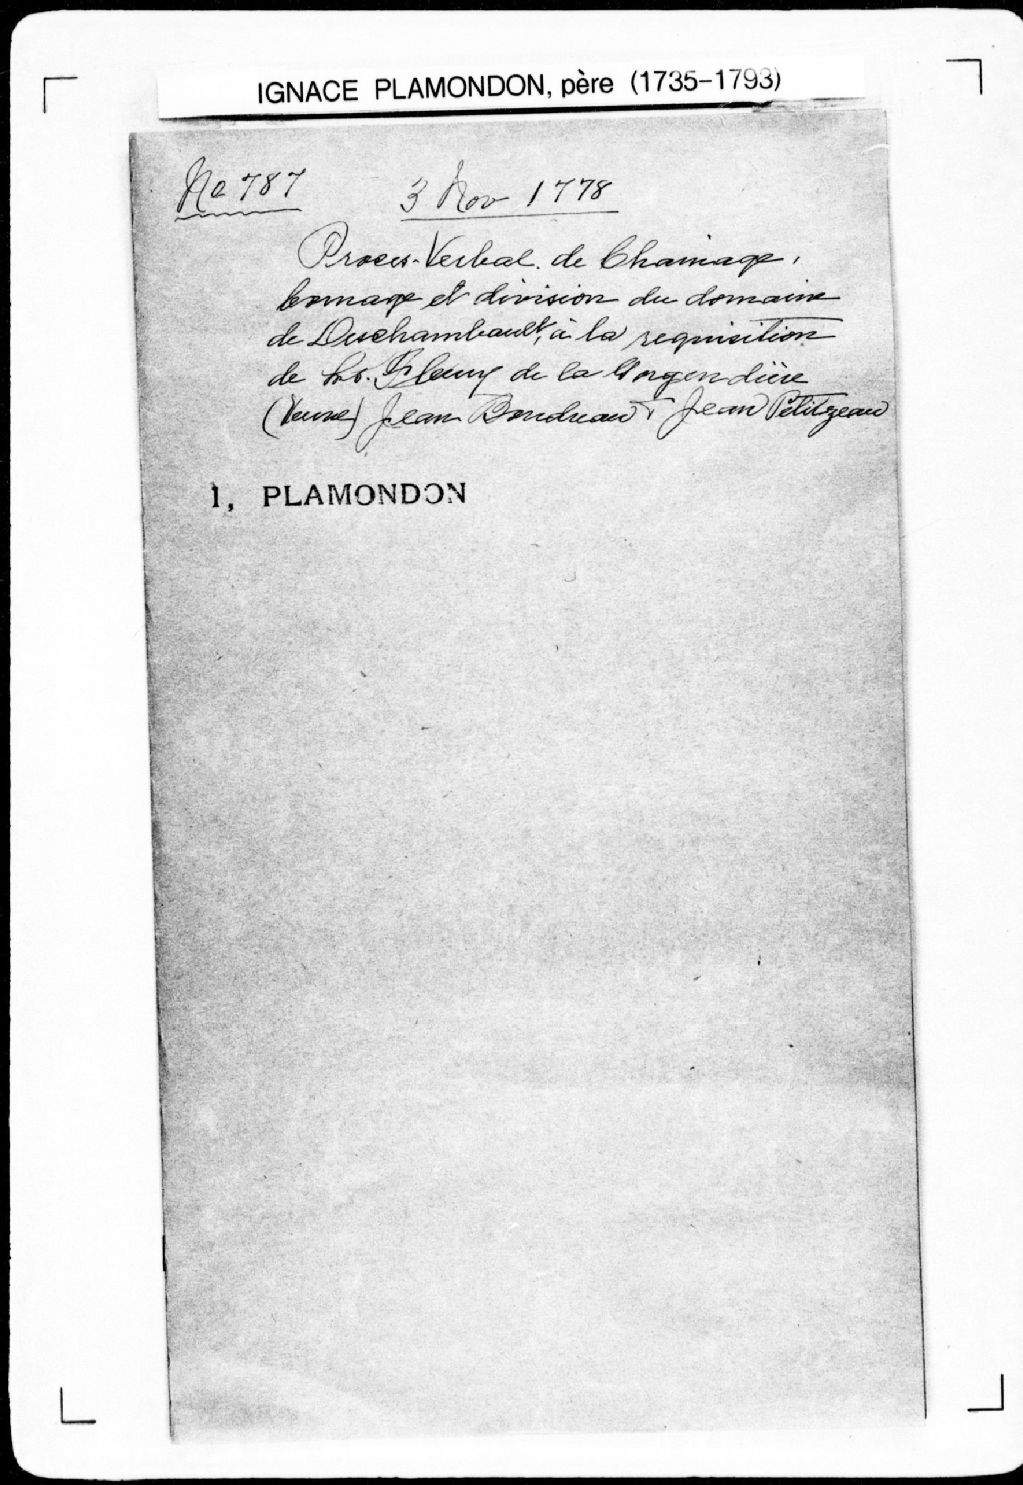 IGNACE PLAMONDON, père (1735-1793)
No 787 3 Nov 1778
Proces-Verbal de Chainage,
bornage et division du domaine
de Deschambault, à la requisition
de Ls. Fleury de la Gorgendière
(Veuve) Jean Boudreau & Jean Petitgeau
1, PLAMONDON